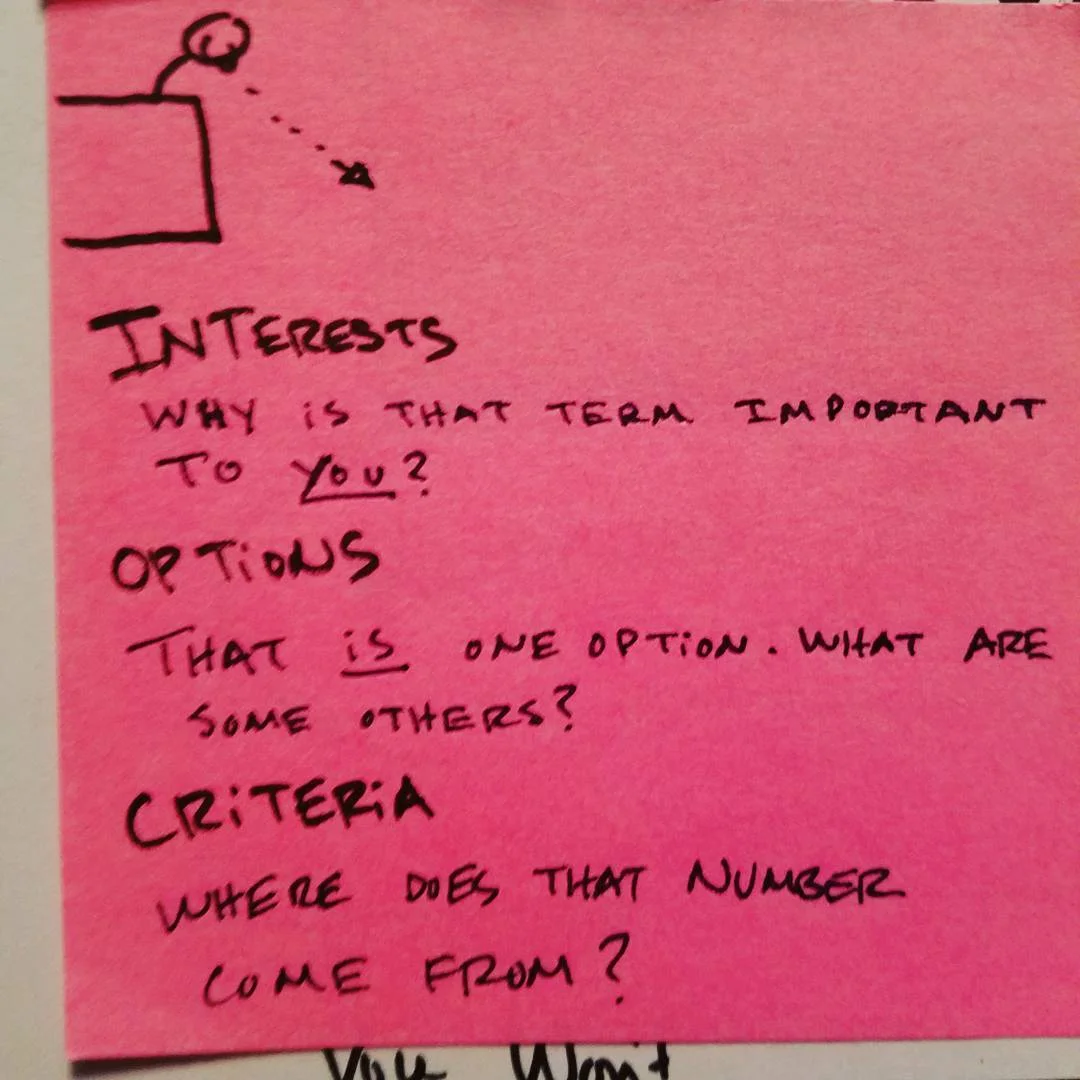 INTERESTS
WHY iS THAT TERM IMPORTANT
TO YOU?
OPTiONS
THAT iS ONE OPTiON. WHAT ARE
SOME OTHERS?
CRiTERiA
WHERE DOES THAT NUMBER
COME FROM?
You Won't